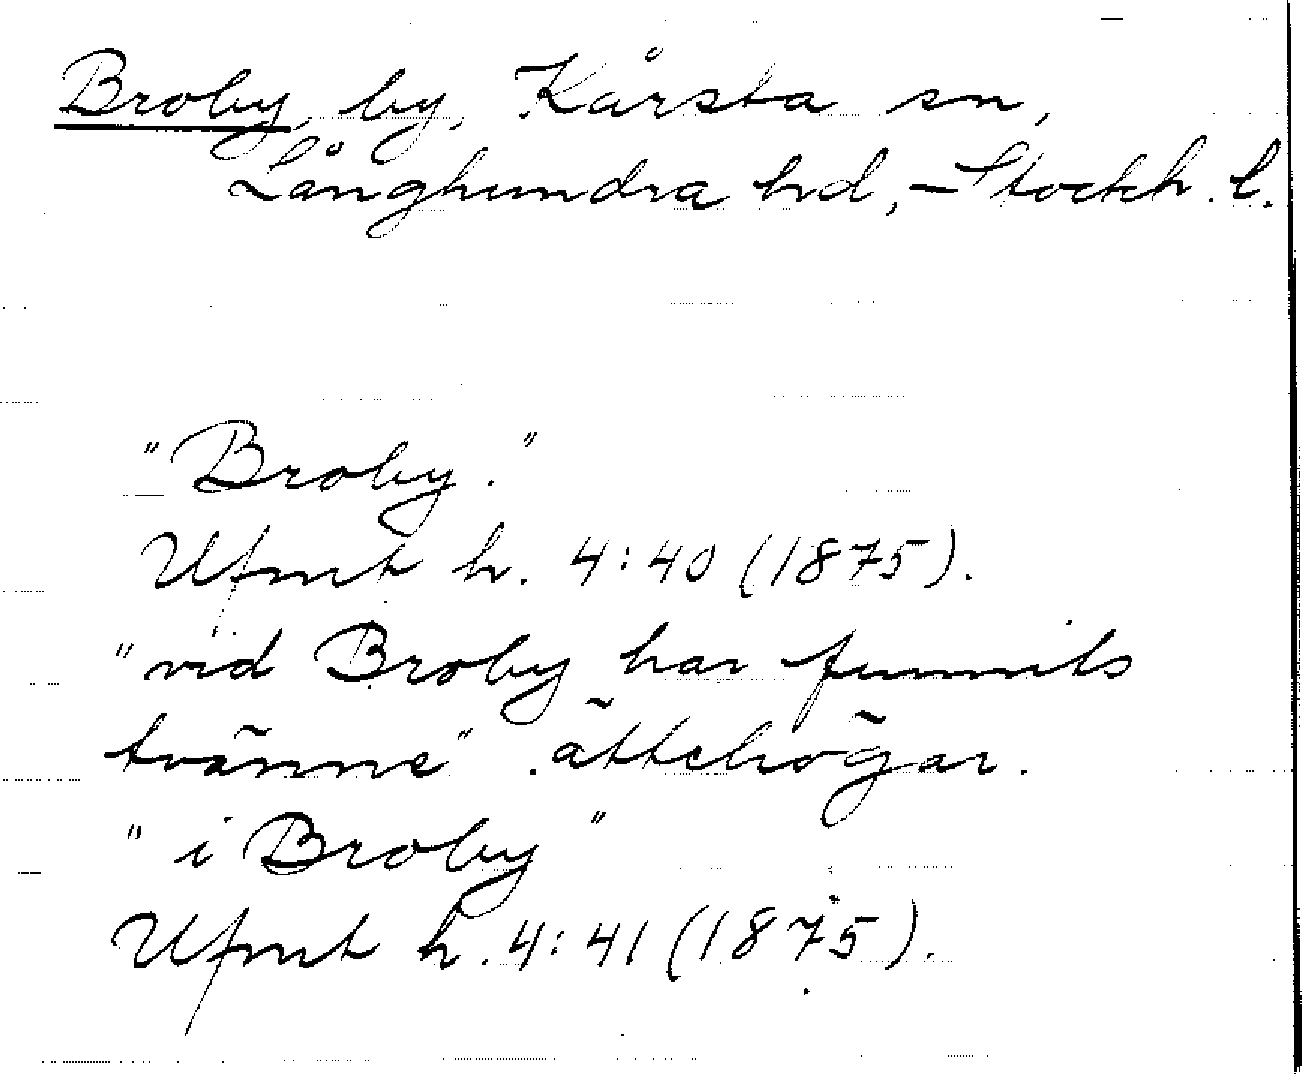 Broby, by, Kårsta sn,
Långhundra hd, Stockh. l.
"Broby."
Ufmt h. 4:40 (1875).
"vid Broby har funnits
tvänne" ättehögar.
"i Broby"
Ufmt h. 4:41 (1875).